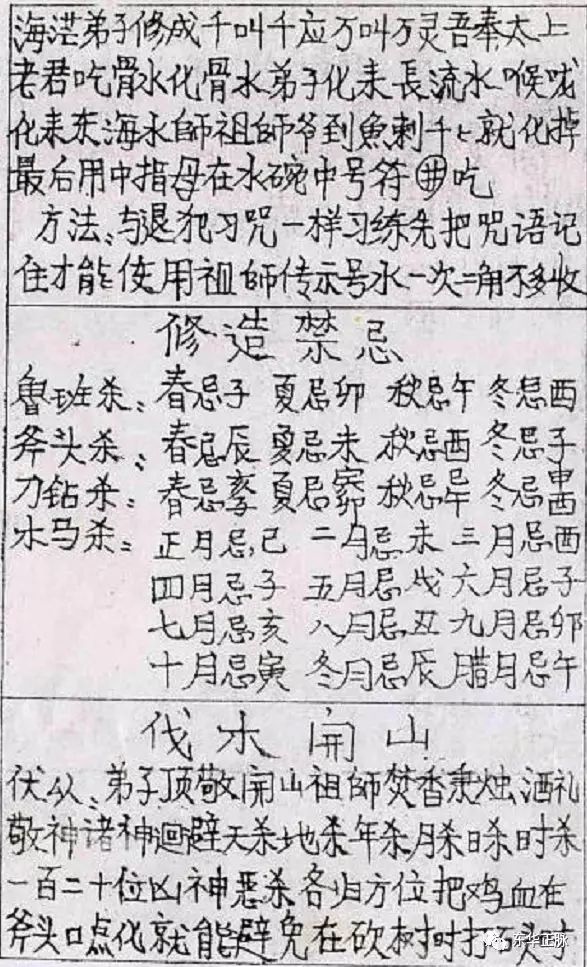 海茫弟子修成千叫千应万叫万灵吾奉太上
老君吃骨水化骨水弟子化来長流水喉咙
化来东海水自師祖師爷到魚刺千千就化掉
最后用中指母在水碗中号符 吃
方法、与退犯习咒一样习练先把咒语记
住才能使用祖師传示号水一次二角不多收
修造禁忌
魯班杀：春忌子 夏忌卯 秋忌午 冬忌酉
斧头杀：春忌辰 夏忌未 秋忌酉 冬忌子
刀钻杀：春忌亥子 夏忌寅卯 秋忌巳午 冬忌申酉
木马杀：正月忌巳 二月忌未 三月忌酉
四月忌子 五月忌戌 六月忌子
七月忌亥 八月忌丑 九月忌卯
十月忌寅 冬月忌辰 腊月忌午
伐木開山
伏以、弟子顶敬開山祖師焚香秉烛洒礼
敬神诸神迴避天杀地杀年杀月杀日杀时杀
一百二十位凶神悪杀各归方位把鸡血在
斧头口点化就能避免在砍树时打
东华正脉